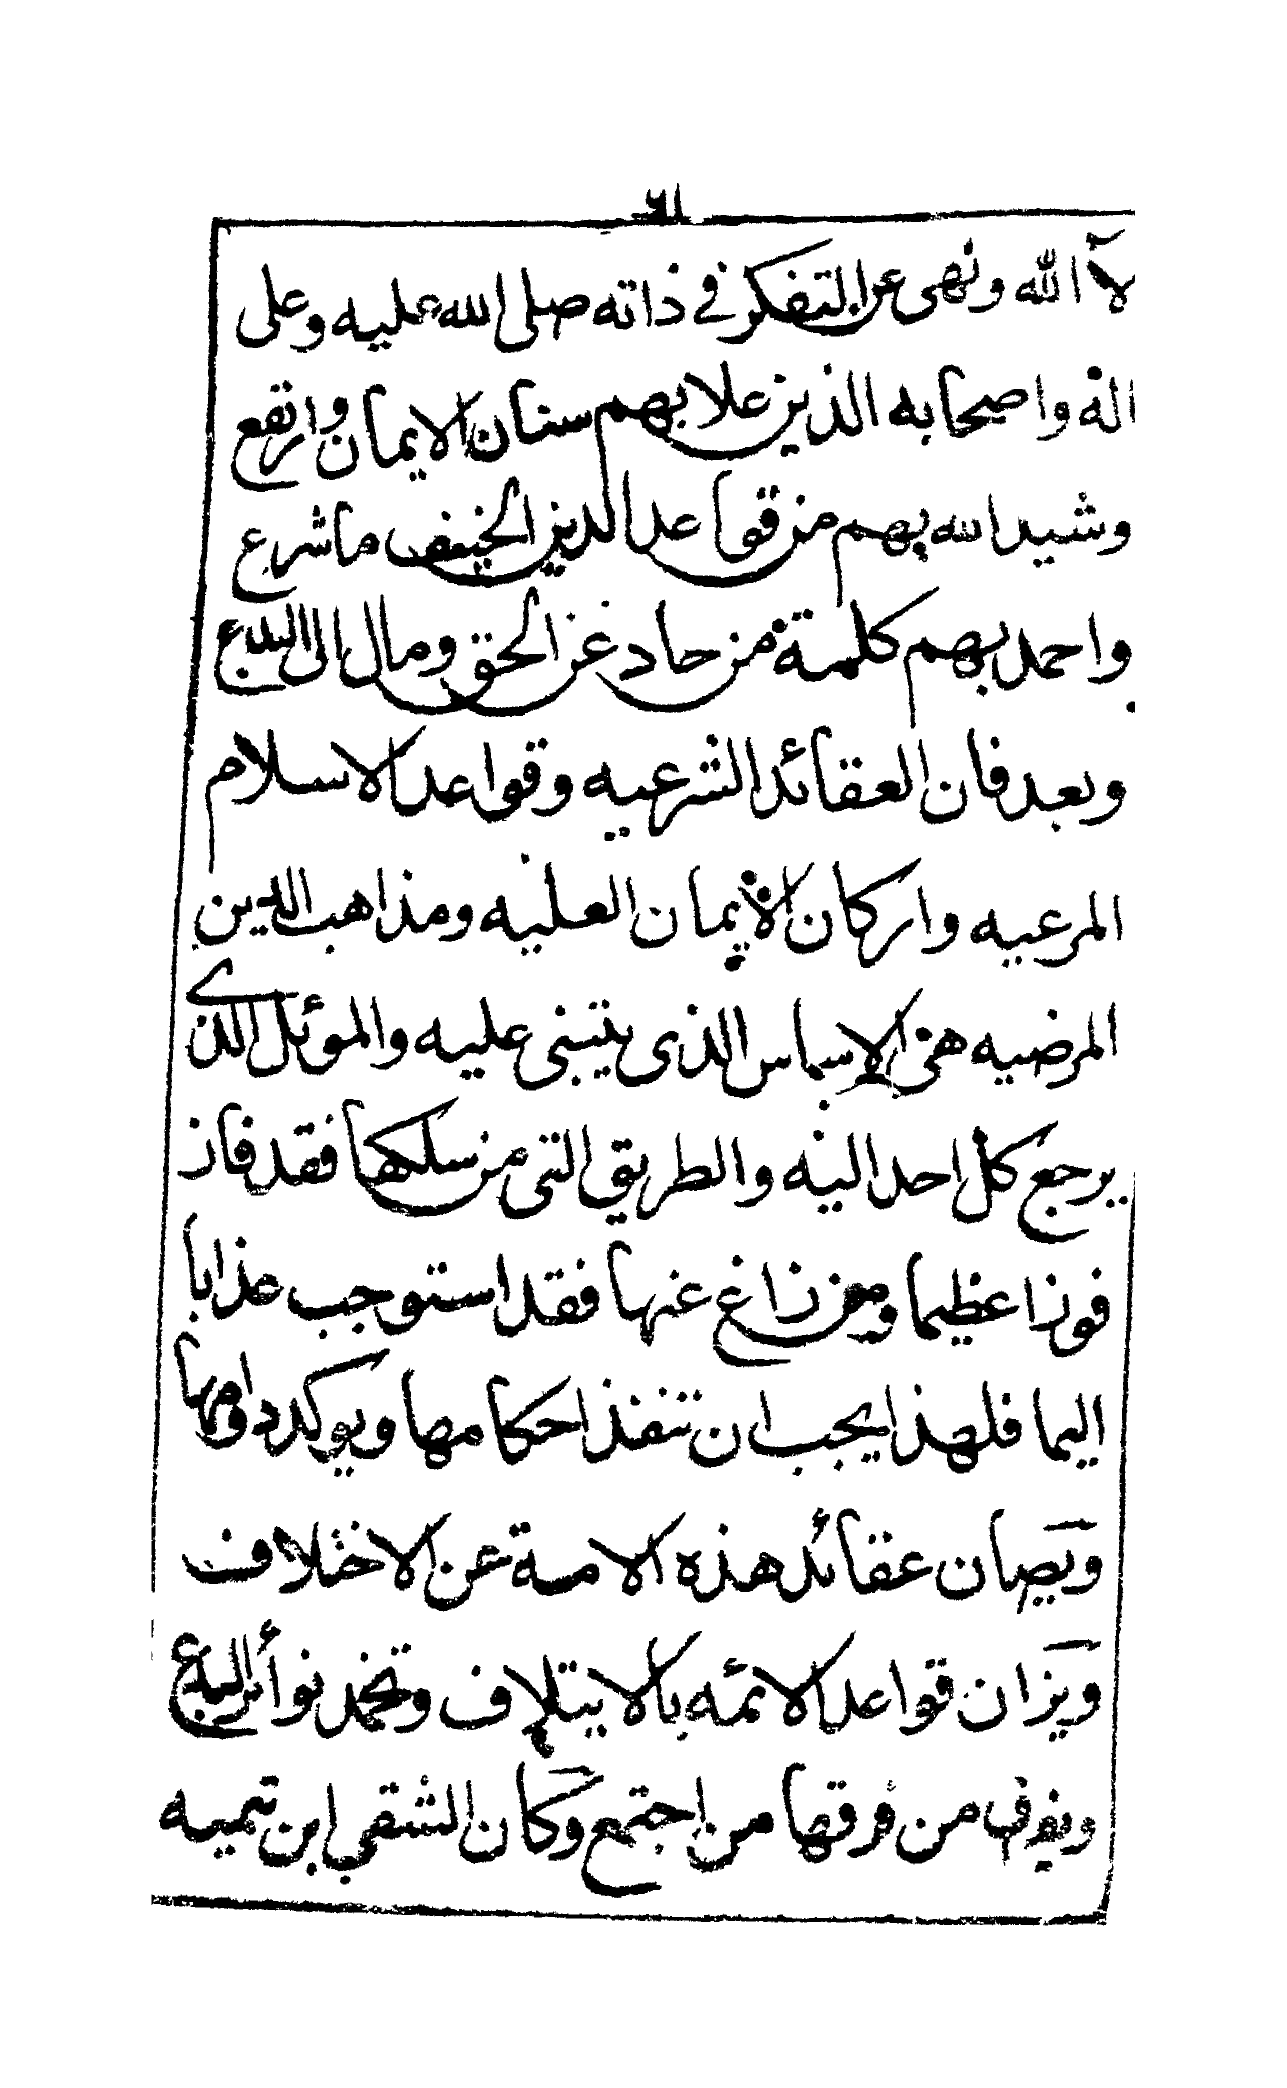 ٦١
لآ الله ونهى عن التفكر في ذاته صلى الله عليه وعلى
اله واصحابه الذين علا بهم سنان الايمان وارتفع
وشيد الله بهم من قواعد الدين الحنيف ما شرع
واخمد بهم كلمة من حاد عن الحق ومال الى البدع
وبعد فان العقائد الشرعيه وقواعد الاسلام
المرعيه واركان الايمان العليه ومذاهب الدين
المرضيه هي الاساس الذى يبتنى عليه والموئل الذي
يرجع كل احد اليه والطريق التى من سلكها فقد فاز
فوزا عظيما ومن زاغ عنها فقد استوجب عذابا
اليما فلهذا يجب ان تنفذ احكامها ويوكد دوامها
وتصان عقائد هذه الامة عن الاختلاف
وتزان قواعد الائمه بالايتلاف وتخمد نوائر البدع
ويفرق من فرقها من اجتمع وكان الشقي ابن تيميه